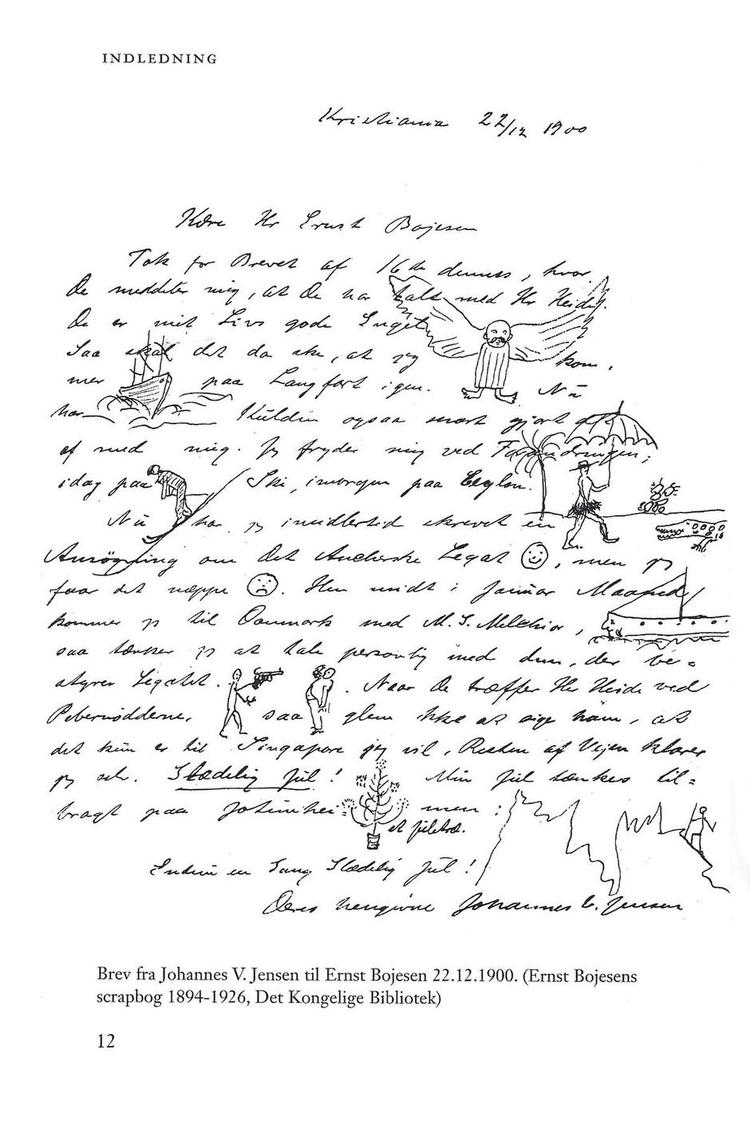 INDLEDNING
Kristiania 22/12 1900
Kære Hr Ernst Bojesen
Tak for Brevet af 16de dennes, hvor
De meddeler mig, at De har talt med Hr Heide.
De er mit Livs gode Engel
Saa skal det da ske, at jeg kom,
mer paa Langfart igen. Nu
har Kulden ogsaa snart gjort det
af med mig. Jeg fryder mig ved Forandringen;
idag paa Ski, imorgen paa Ceylon.
Nu har jeg imidlertid skrevet en
Ansøgning om Det Anckerske Legat , men jeg
faar det næppe . Hen midt i Januar Maaned
kommer jeg til Danmark med M. S. Melchior,
saa tænker jeg at tale personlig med dem, der be=
styrer Legatet. . Naar De træffer Hr Heide ved
Pebernødderne, saa glem ikke at sige ham, at
det kun er til Singapore jeg vil, Resten af Vejen klarer
jeg selv. Glædelig Jul! Min Jul tænkes til=
bragt paa men :
et juletræ.
Endnu en Gang Glædelig Jul!
Deres hengivne Johannes V. Jensen
Brev fra Johannes V. Jensen til Ernst Bojesen 22.12.1900. (Ernst Bojesens
scrapbog 1894-1926, Det Kongelige Bibliotek)
12